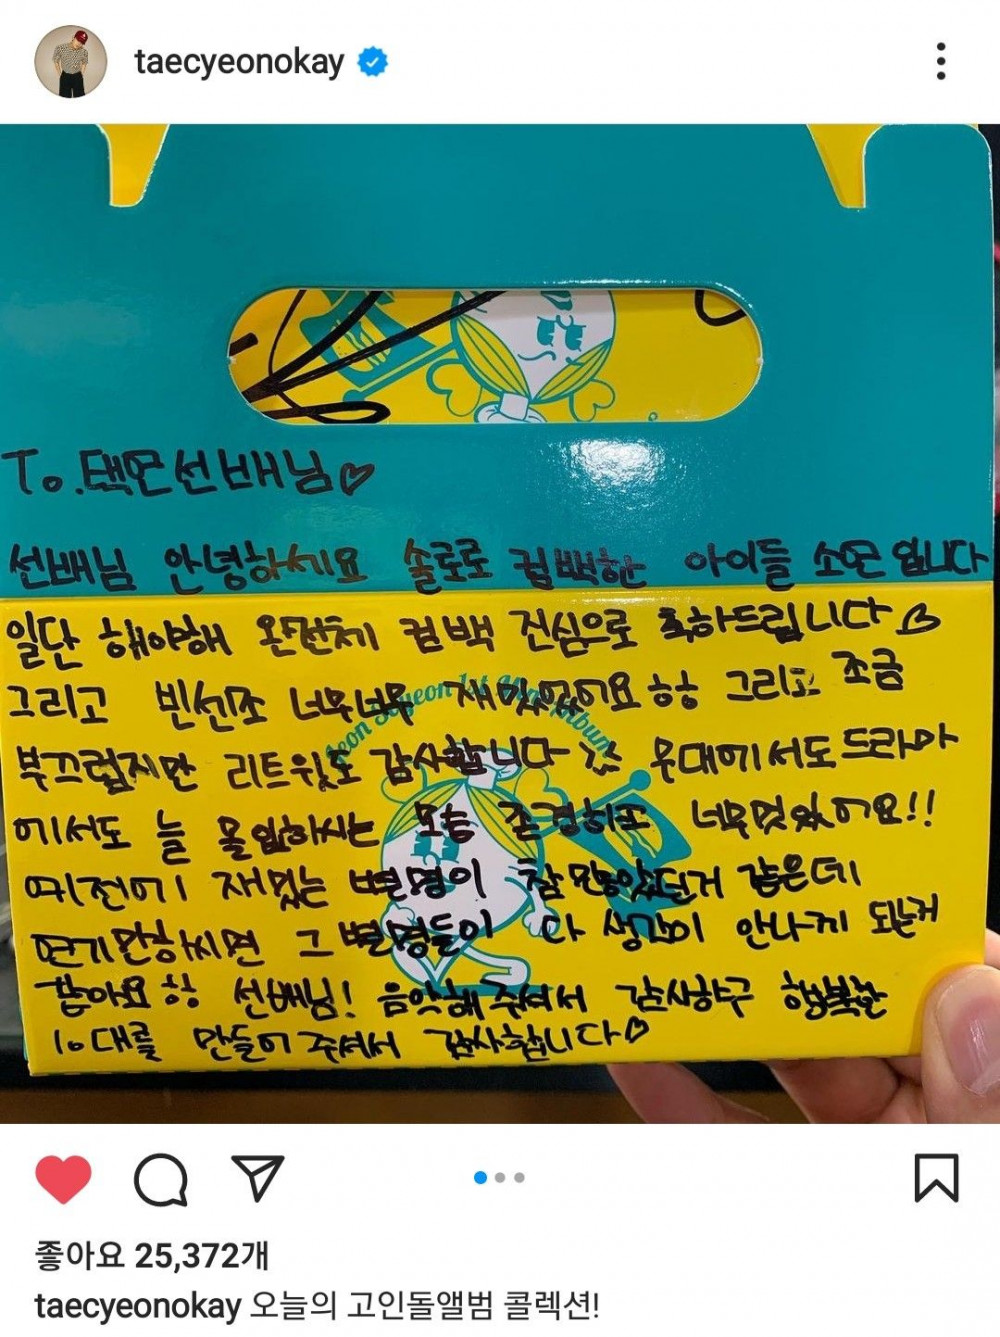 taecyeonokay
To. 택연선배님♡
선배님 안녕하세요 솔로로 컴백한 아이들 소연 입니다
일단 해야해 완전체 컴백 진심으로 축하드립니다♡
그리고 빈센조 너무너무 재밌었어요 하하 그리고 조금
Jeon Soyeon 1st Mini Album
부끄럽지만 리트윗도 감사합니다 무대에서도 드라마
에서도 늘 몰입하시는 모습 존경하고 너무멋있어요!!
예전에 재밌는 별명이 참 많았던거 같은데
연기만하시면 그 별명들이 다 생각이 안나게 되는거
같아요 하하 선배님! 음악해주셔서 감사하구 행복한
10대를 만들어주셔서 감사합니다♡
좋아요 25,372개
taecyeonokay 오늘의 고인돌앨범 콜렉션!